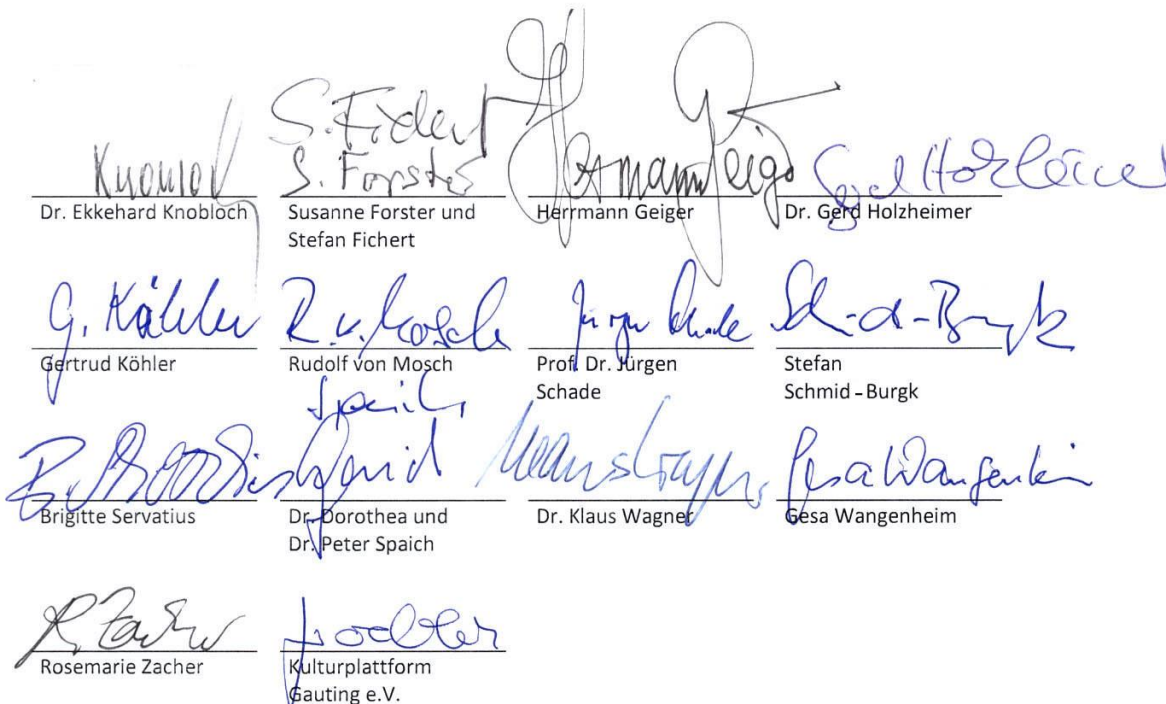 S. Fichert
S. Forster
Dr. Ekkehard Knobloch
Susanne Forster und
Stefan Fichert
Herrmann Geiger
Dr. Gerd Holzheimer
G. Köhler
R. v. Mosch
Gertrud Köhler
Rudolf von Mosch
Prof. Dr. Jürgen
Schade
Stefan
Schmid - Burgk
Spaich
Brigitte Servatius
Dr. Dorothea und
Dr. Peter Spaich
Dr. Klaus Wagner
Gesa Wangenheim
R. Zacher
Rosemarie Zacher
Kulturplattform
Gauting e.V.